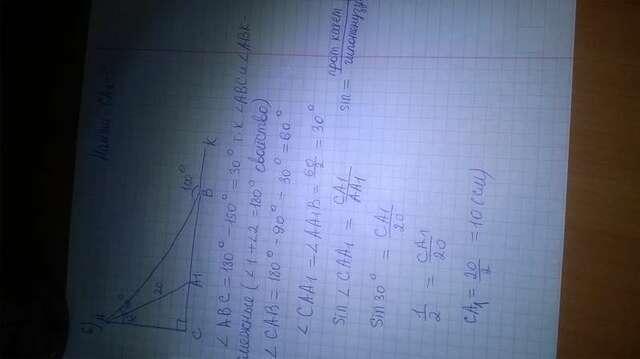 б)
Найти: CA₁
A
20
150°
C A1 B K
∠ABC = 180° - 150° = 30° т.к ∠ABC и ∠ABK -
смежные (∠1 + ∠2 = 180° свойство)
∠CAB = 180° - 90° - 30° = 60°
∠CAA₁ = ∠AA₁B = 60/2 = 30°
sin ∠CAA₁ = CA₁/AA₁ sin = прот катет/гипотенузу
sin 30° = CA₁/20
1/2 = CA₁/20
CA₁ = 20/2 = 10 (см)